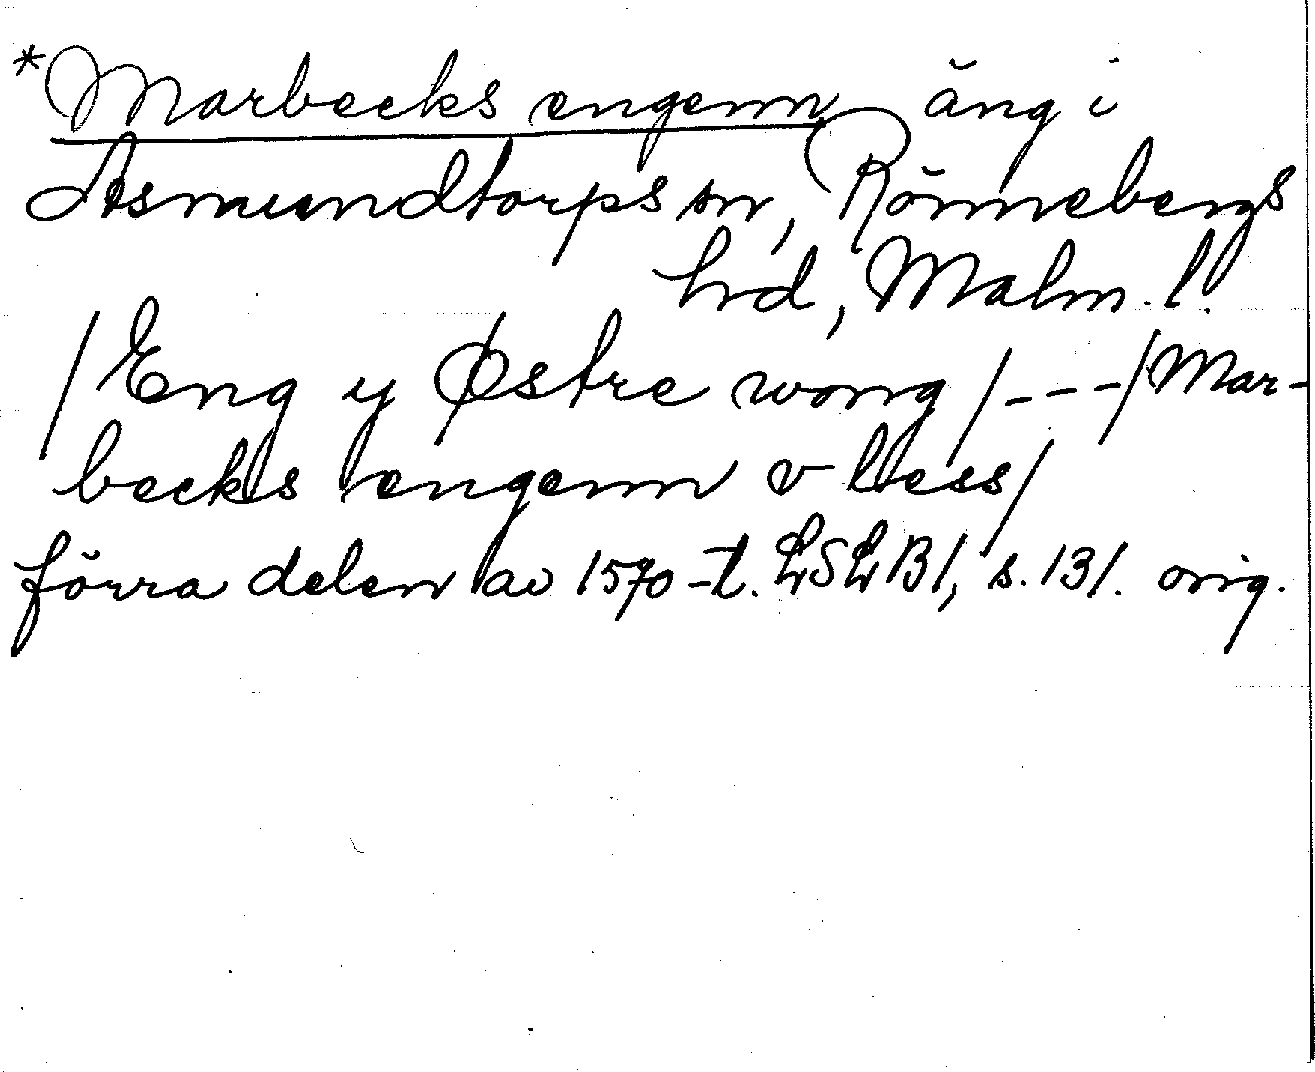 *Marbecks engenn äng i
Asmundtorps sn, Rönnebergs
hrd, Malm. l.
/Eng y Østre wong/---/Mar-
becks engenn v less/
förra delen av 1570-t. LSLB1, s. 131. orig.